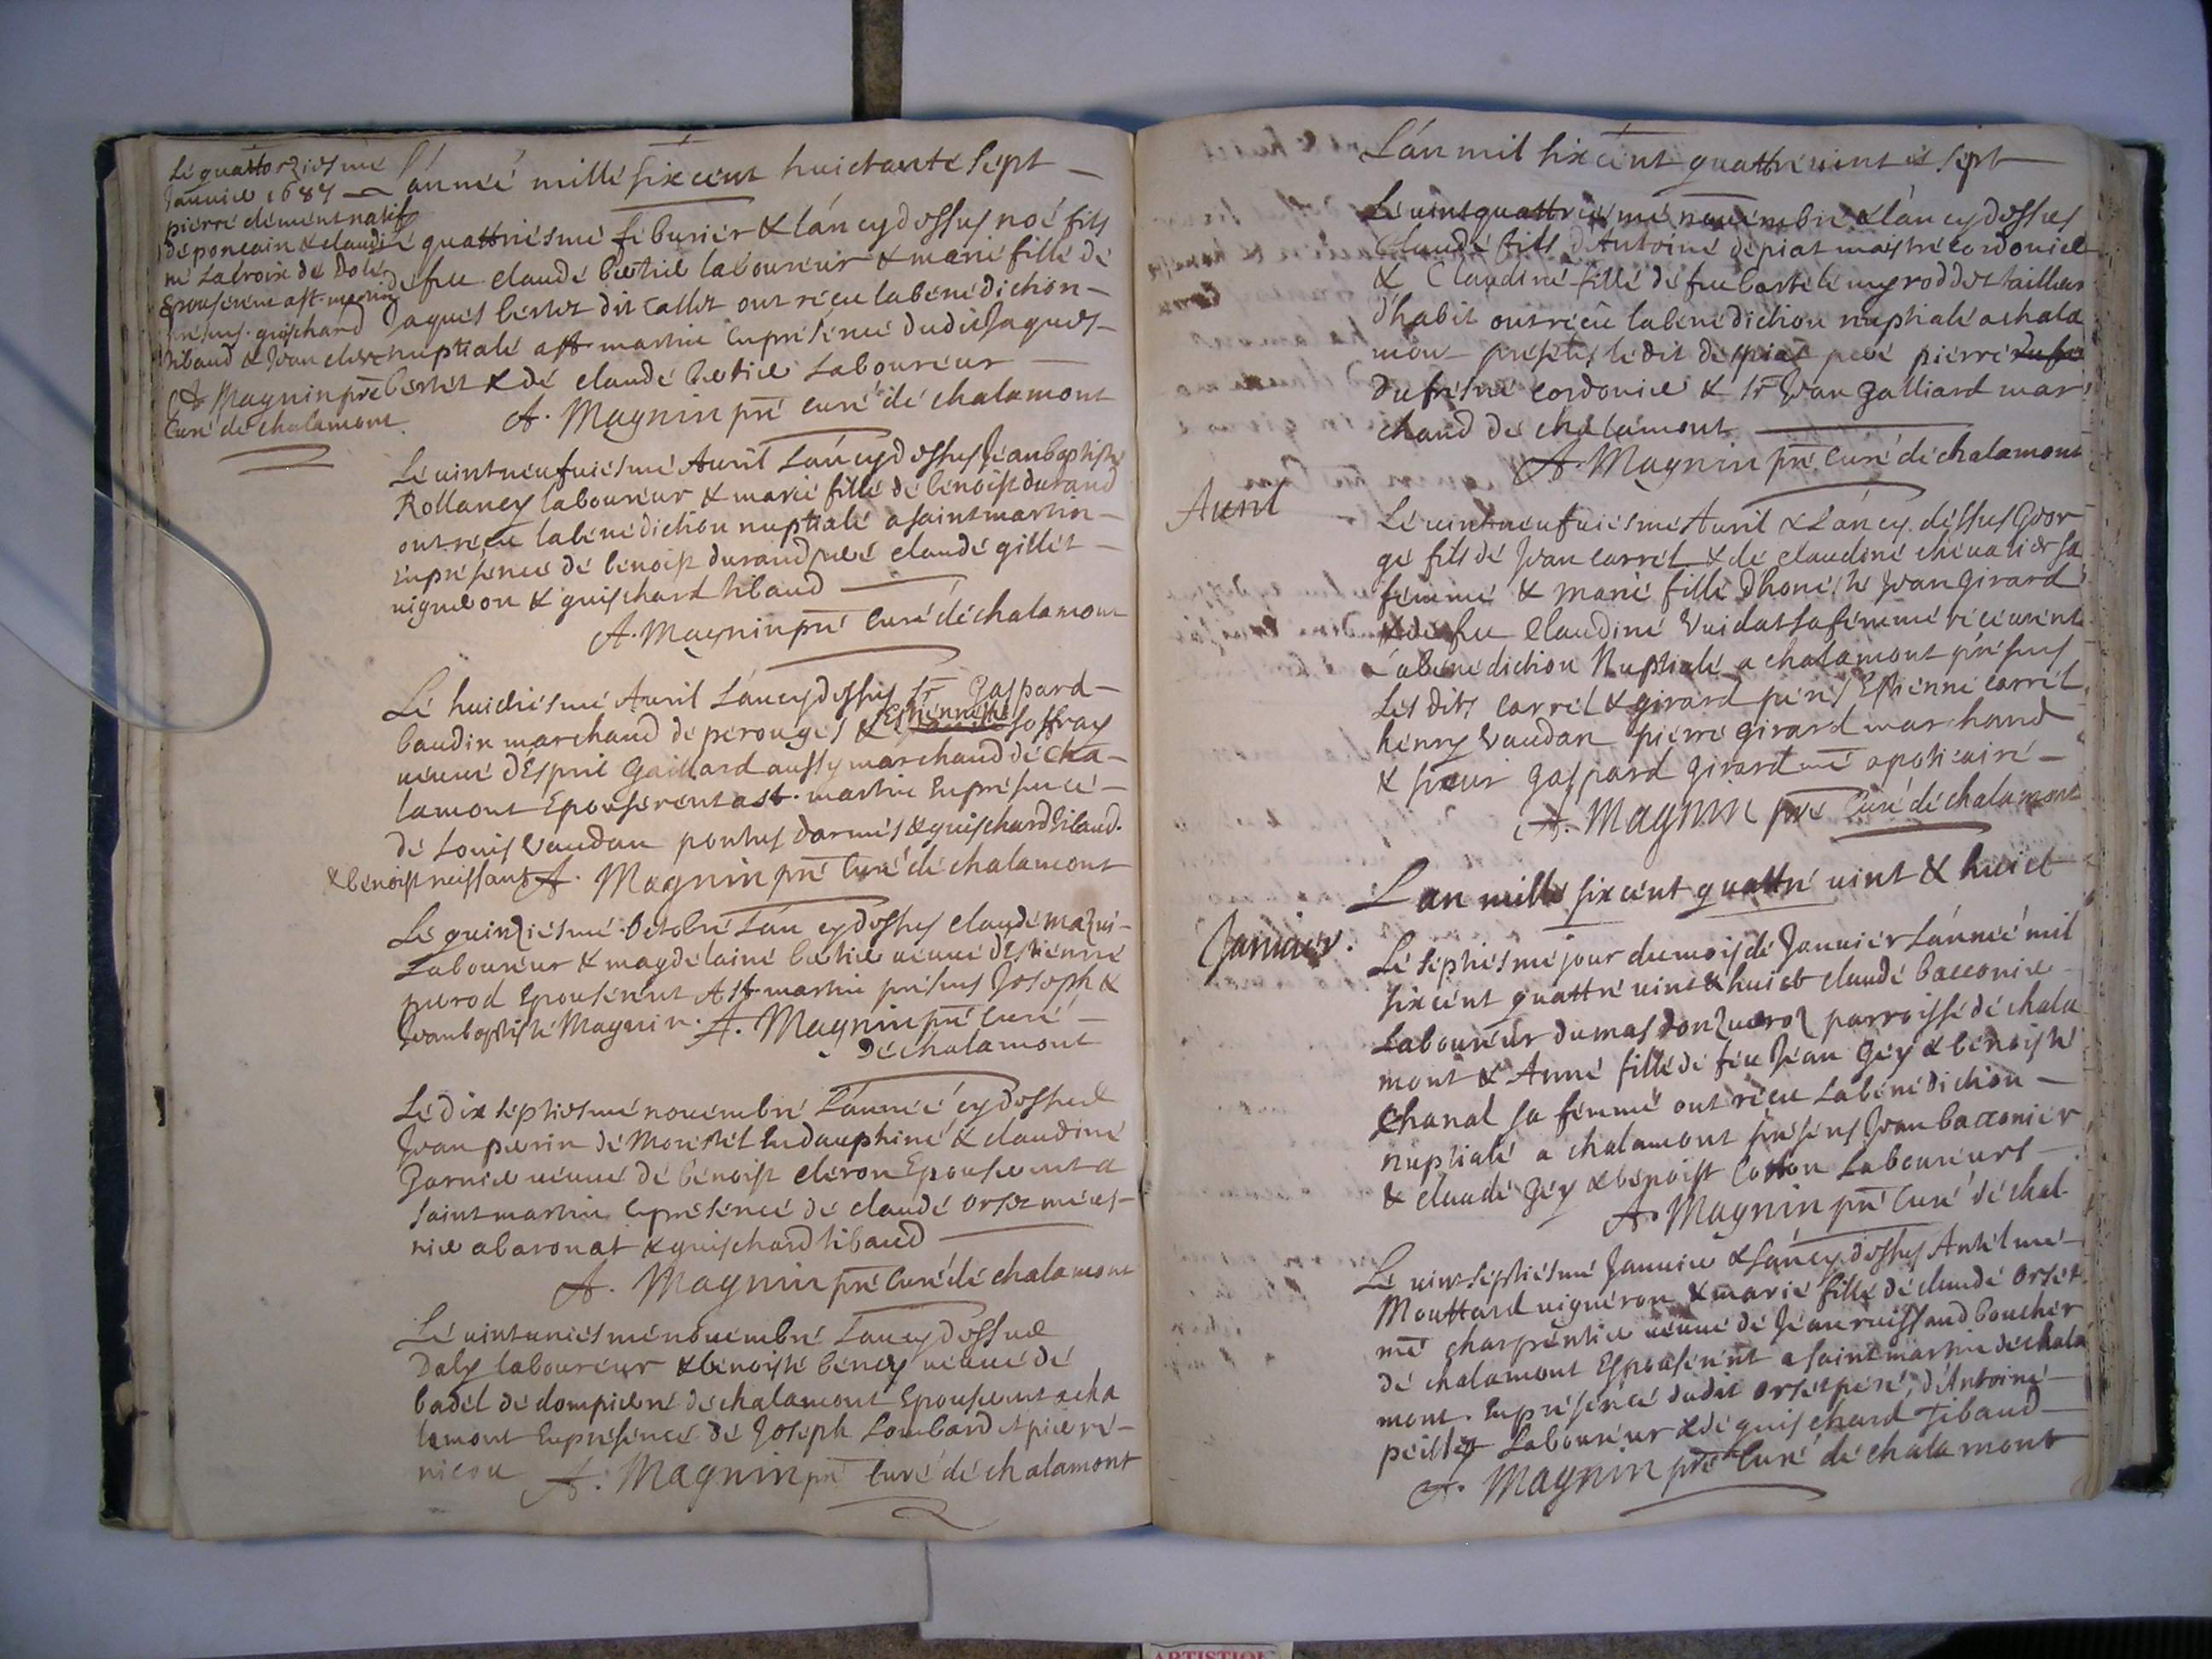 Le quattorziesme
Janvier 1687
pierre clement natif
de poncain & claudi
ne Lacroix de Dole
Epouserent a st. martin
présens guischard
tibaud & Jean clerc
A Magnin pre
Curé de chalamont
L'année mille six cent huictante sept
Le quattriesme feburier & l'an cydessus noé fils
de feu claude bertier laboureur & marie fille de
Jaques bertet dit callet ont receu la bénédiction
nuptiale a st martin en présence dudit Jaques
bertet & de claude bertier Laboureur
A. Magnin pre curé de chalamont
Le vintneufuiesme Auril L'an cydessus Jean baptiste
Rollancy laboureur & marie fille de benoist durand
ont receu la bénédiction nuptiale a saint martin
en présence de benoist durand pere claude gillet
vigneron & guischard tibaud
A. Magnin pre Curé de chalamont
Le huictiesme Auril L'an cydessus sr Gaspard
baudin marchand de perouges & Estiennette Soffray
veuue d'Esprit Gaillard aussy marchand de cha
lamont Epouserent a st. martin en présence
de Louis Vaudan pontus darmes & guischard tibaud
& benoist neissant A. Magnin pre Curé de chalamont
Le quinziesme Octobre L'an cydessus claude mazui
Laboureur & magdelaine bertier veuue d'Estienne
perrod Epouserent A st martin présens Joseph &
Jean baptiste Magnin. A. Magnin pre Curé
de chalamont
Le dix septiesme nouembre L'année cydessus
Jean perrin de Morestel en dauphiné & claudine
garnier veuue de benoist cleron Epouserent a
saint martin en présence de claude orset
nier a baronat & guischard tibaud
A. Magnin pre Curé de chalamont
Le vintuniesme nouembre L'an cydessus
Daly laboureur & benoiste bency veuue de
badel de dompierre de chalamont Epouserent a cha
lamont en présence de Joseph Lombard et pierre
nicou A. Magnin pre Curé de chalamont
L'an mil six cent quattre vint et sept
Le vint quattriesme nouembre & l'an cydessus
Claude fils d'Antoine depiat maistre cordonier
& Claudine fille de feu bartelemy roddet tailleur
d'habit ont receu la bénédiction nuptiale a chala
mont présens ledit depiat pere pierre dufre
Dufresne cordonier & sr Jean Galliard mar
chand de chalamont
A. Magnin pre Curé de chalamont
Auril
Le vintneufuiesme Auril & L'an cy dessus Geor
ge fils de Jean carrel & de claudine cheualier sa
femme & marie fille d'honeste Jean Girard
& de feu Claudine Vuidat sa femme receurent
La bénédiction Nuptiale a chalamont présens
Les dits carrel & girard peres Estienne carrel
henry Vaudan pierre girard marchand
& sieur Gaspard Girard me apoticaire
A. Magnin pre Curé de chalamont
L an mille six cent quattre vint & huict
Januier.
Le septiesme jour du mois de Januier L'année mil
six cent quattre vint & huict claude bacconier
Laboureur du mas donzueroz parroisse de chala
mont & Anne fille de feu Jean Gey & benoiste
Chanal sa femme ont receu La bénédiction
nuptiale a chalamont présens Jean bacconier
& claude Gey & benoist Cotton Laboureurs
A. Magnin pre Curé de chal
Le vint septiesme Januier & L'an cy dessus Antelme
Mouttard vigneron & marie fille de claude Orset
me charpentier veuue de Jean neissand boucher
de chalamont Espouserent a saint martin de chala
mont. En présence dudit orset pere, d'Antoine
peilley Laboureur & de guischard Tibaud
A. Magnin pre Curé de chalamont